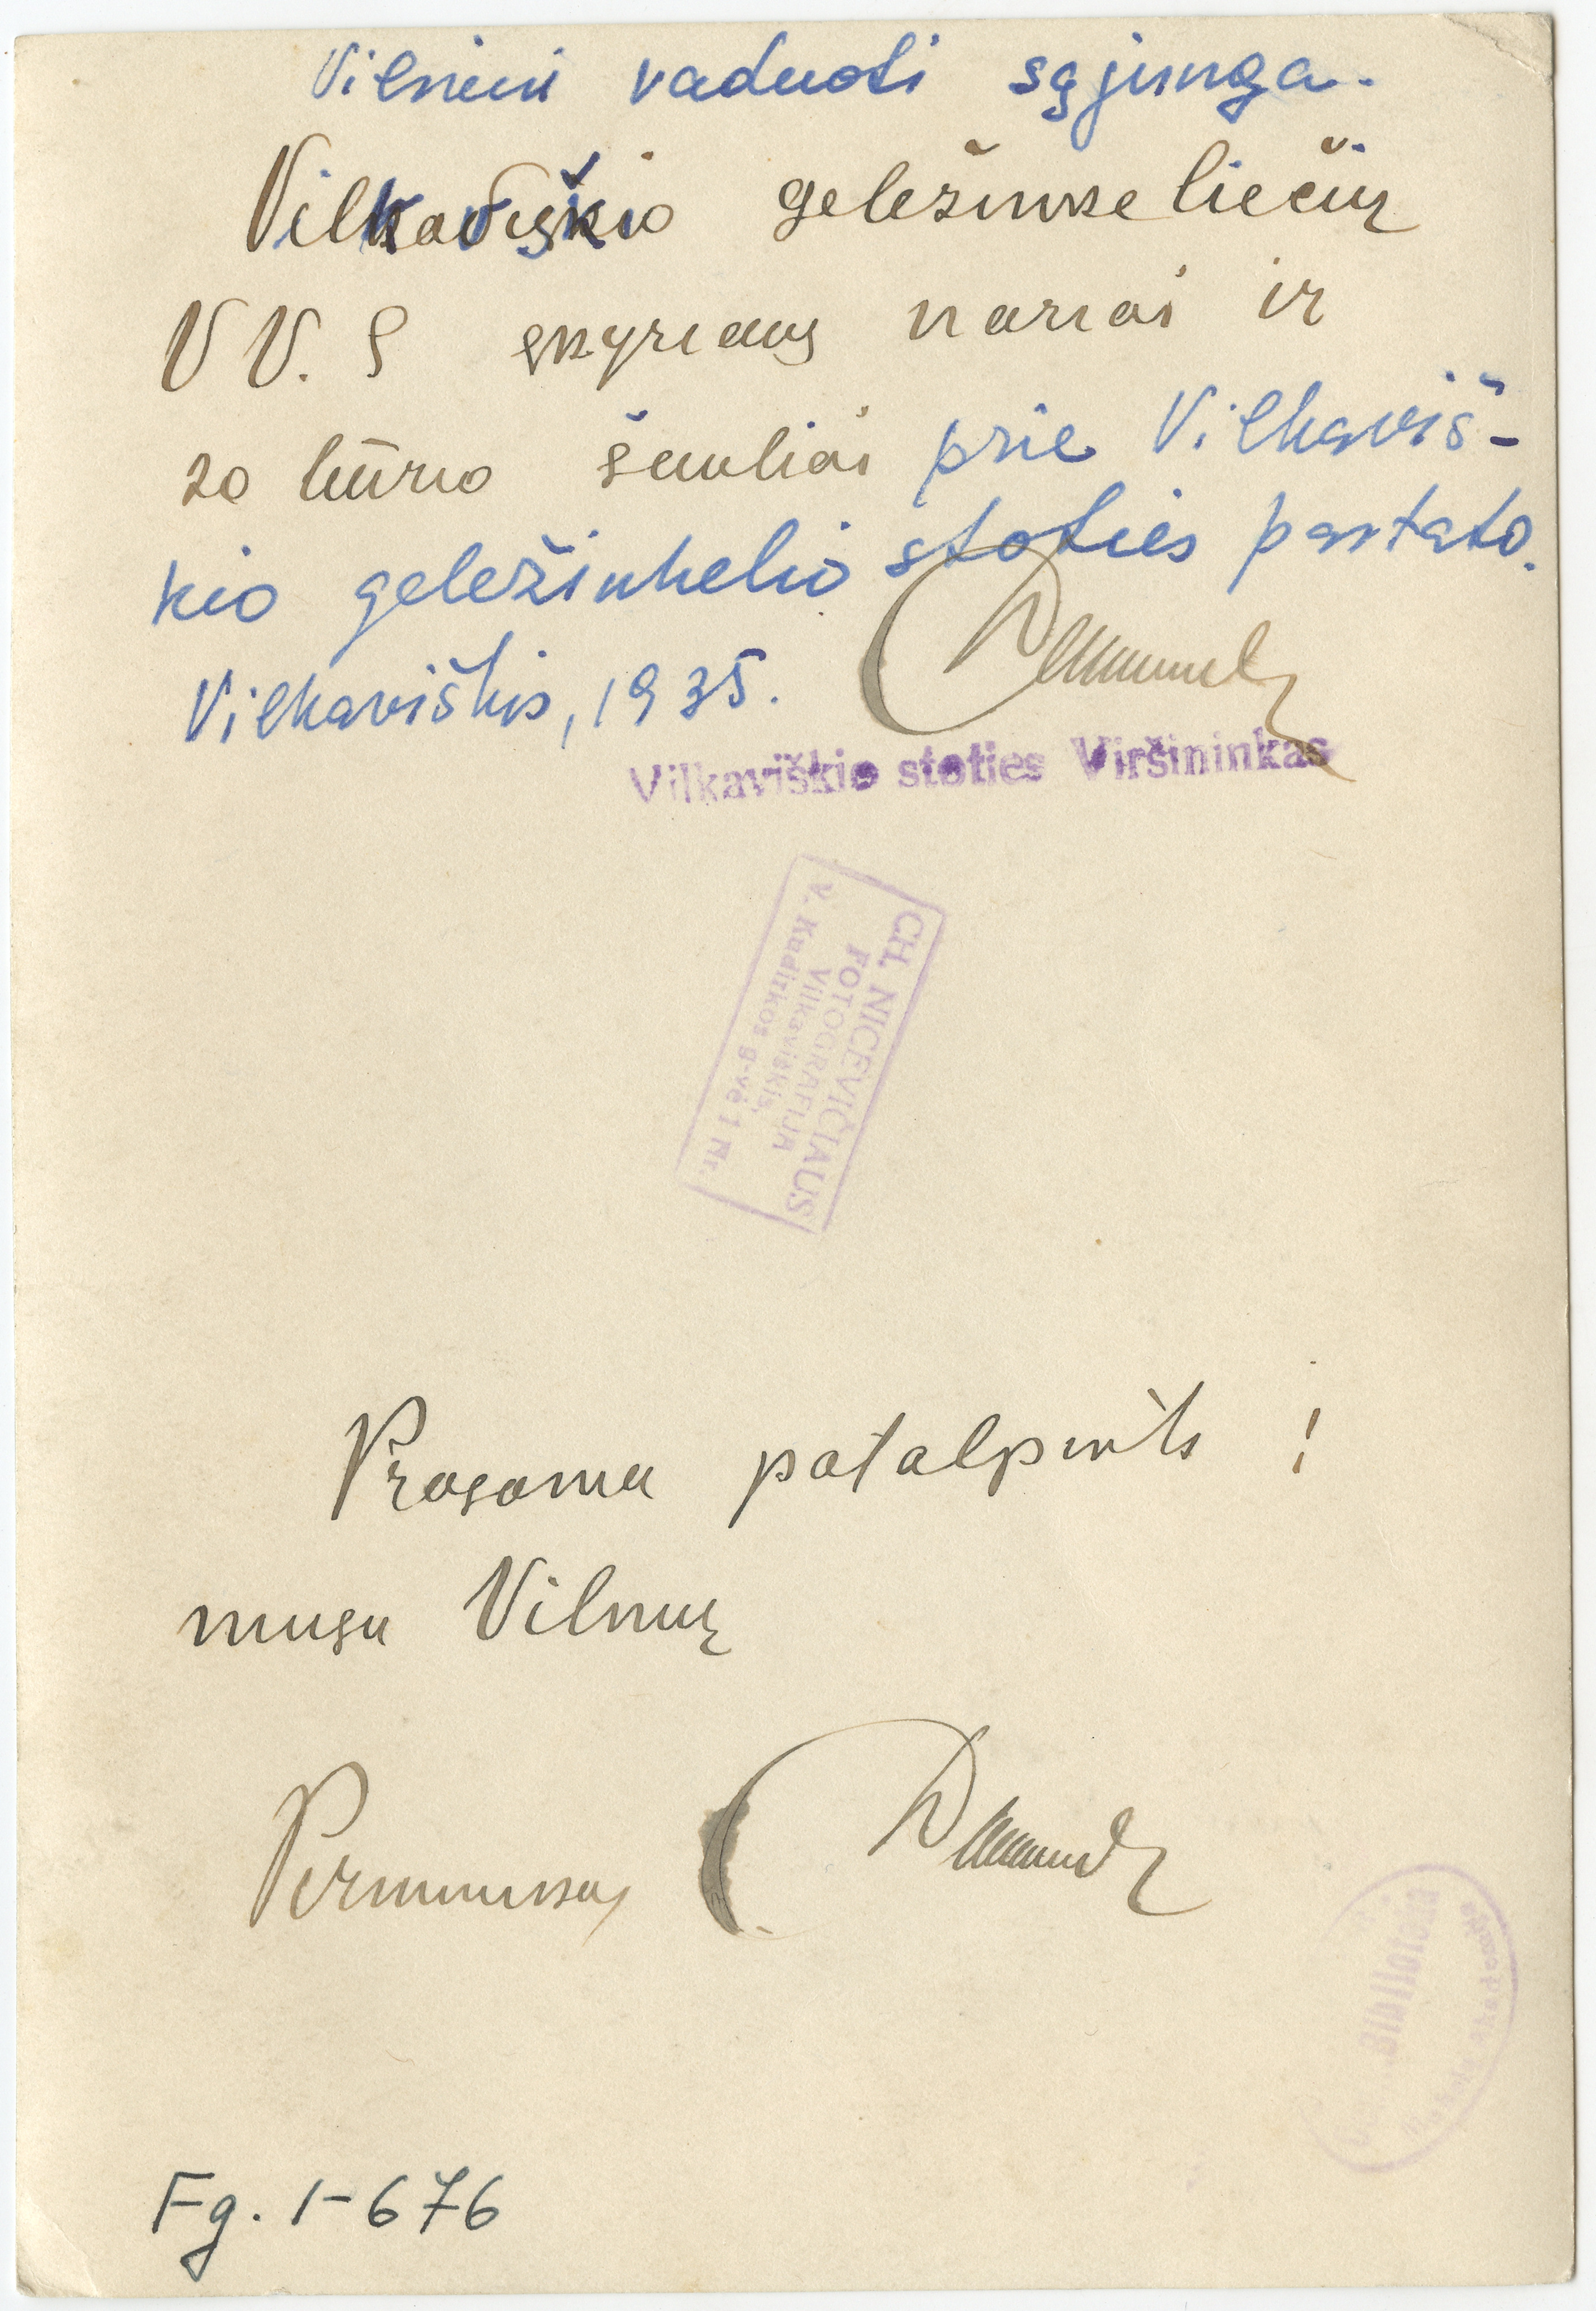 Vilniui vaduoti sąjunga.
Vilkaviškio geležinkeliečių
V V. S skyriaus nariai ir
20 būrio šauliai prie Vilkaviš-
kio geležinkelio stoties pastato.
Vilkaviškis, 1935.
Vilkaviškio stoties Viršininkas
CH. NICEVIČIAUS
FOTOGRAFIJA
Vilkaviškis,
V. Kudirkos g-vė 1 Nr.
Prasoma patalpinti !
musu Vilnių
Pirmininkas
Biblioteka
Mokslų Akademija
Fg. 1-676